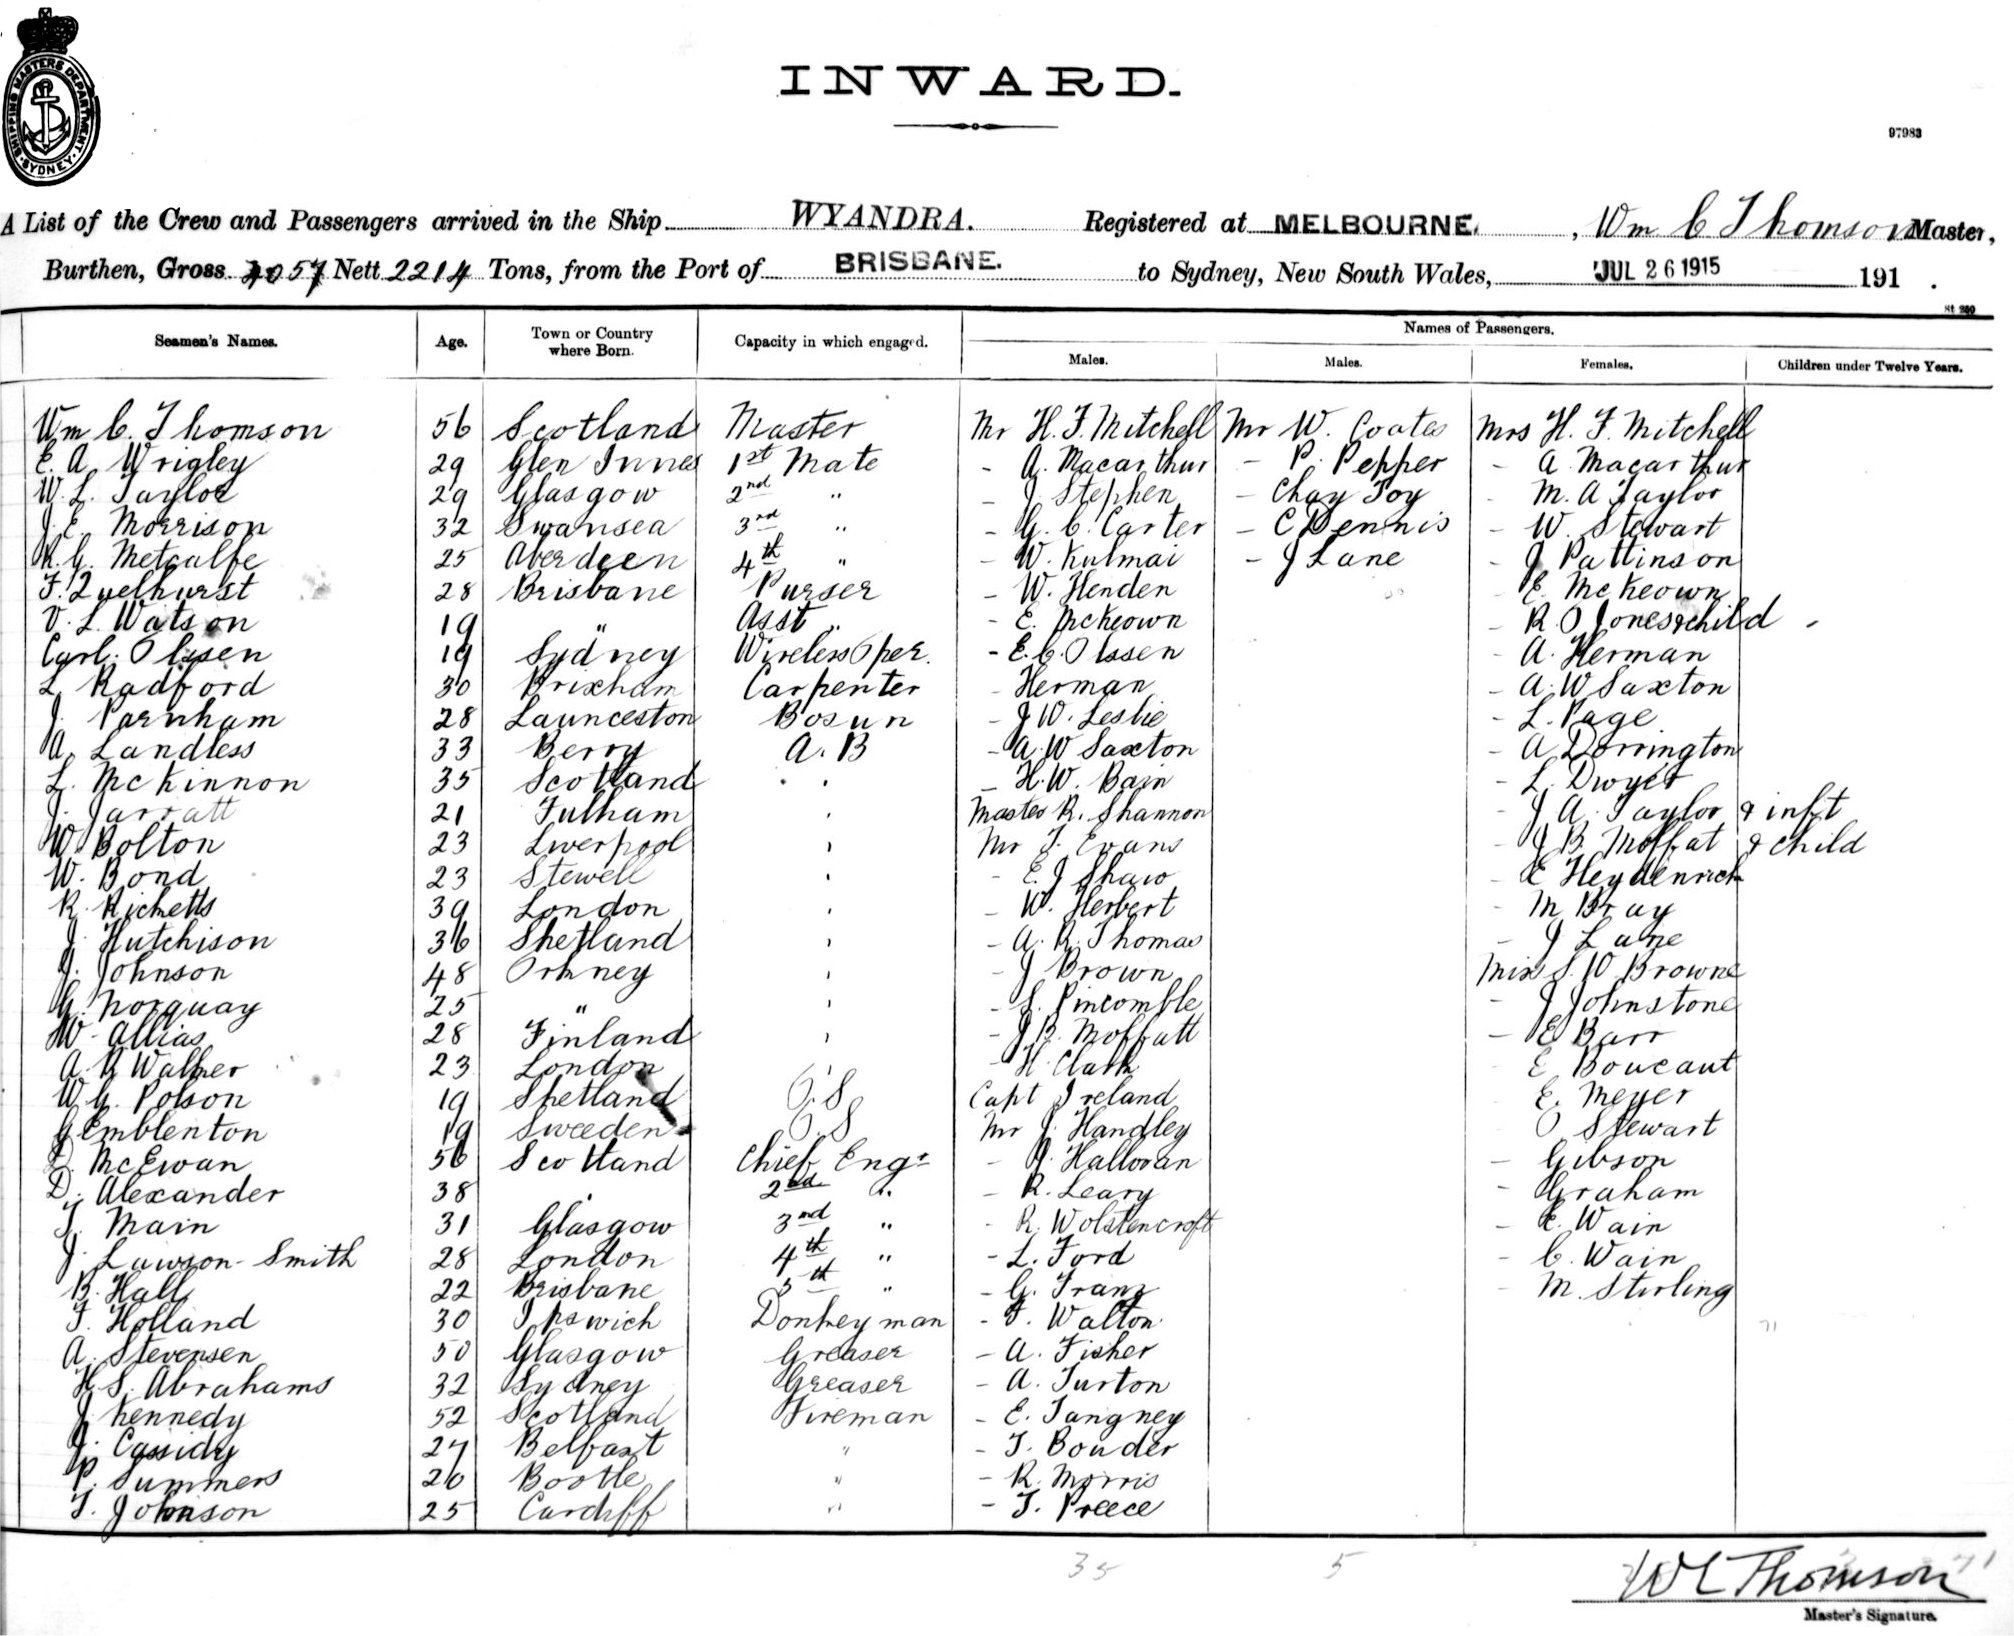 SHIPPING MASTERS DEPARTMENT. SYDNEY.
INWARD.
97983
A List of the Crew and Passengers arrived in the Ship WYANDRA. Registered at MELBOURNE. , Wm C Thomson Master,
Burthen, Gross 4057 Nett 2214 Tons, from the Port of BRISBANE. to Sydney, New South Wales, JUL 26 1915 191 .
St 260
Seamen's Names. Age. Town or Country where Born. Capacity in which engaged. Names of Passengers.
Males. Males. Females. Children under Twelve Years.
Wm C. Thomson 56 Scotland Master Mr H. F. Mitchell Mr W. Coates Mrs H. F. Mitchell
E. A. Wrigley 29 Glen Innes 1st Mate - A. Macarthur - P. Pepper - A. Macarthur
W. L. Taylor 29 Glasgow 2nd " - J. Stephen - Chay Toy - M. A Taylor
J. E. Morrison 32 Swansea 3rd " - G. C. Carter - C Dennis - W. Stewart
R. G. Metcalfe 25 Aberdeen 4th " - W. Kulmai - J Lane - J Pattinson
F. Quelhurst 28 Brisbane Purser - W. Henden - E. McKeown
V. L. Watson 19 " Asst " - E. McKeown - R. O Jones & child
Carl. Olssen 19 Sydney Wireless Oper. - E. C. Olssen - A. Herman
L. Radford 30 Brixham Carpenter - Herman - A. W Saxton
J. Parnham 28 Launceston Bosun - J W. Leslie - L. Page
A. Landless 33 Berry A. B - A. W Saxton - A Dorrington
L. McKinnon 35 Scotland " - H. W. Bain - L. Dwyer
J. Jarratt 21 Fulham " Master R. Shannon - J A. Taylor & inft
W. Bolton 23 Liverpool " Mr T. Evans - J B. Moffat & child
W. Bond 23 Stewell " - E. J Shaw - E Heydenrich
R. Ricketts 39 London " - W. Herbert - M Bray
J. Hutchison 36 Shetland " - A. R. Thomas - J Lane
J. Johnson 48 Orkney " - J Brown Miss S. W Browne
G. Norquay 25 " " - S. Pincomble - J Johnstone
W. Allias 28 Finland " - J B. Moffatt - E Barr
A. R Walker 23 London " - H. Clark E Boucaut
W. G. Polson 19 Shetland O. S Capt Ireland E. Meyer
G Emblenton 19 Sweeden O. S Mr J. Handley O Stewart
D. McEwan 56 Scotland Chief Engr - J. Halloran - Gibson
D. Alexander 38 " 2nd " - R. Leary - Graham
T. Main 31 Glasgow 3rd " - R. Wolstencroft - E. Wain
J. Lawson-Smith 28 London 4th " - L. Ford - C. Wain
B. Hall 22 Brisbane 5th " - G. Franz - M. Stirling
F. Holland 30 Ipswich Donkeyman - F. Walton
A. Stevensen 50 Glasgow Greaser - A. Fisher
H. S. Abrahams 32 Sydney Greaser - A. Turton
J. Kennedy 52 Scotland Fireman - E. Tangney
J. Cassidy 27 Belfast " - T. Bouder
P. Summers 20 Bootle " - R. Morris
T. Johnson 25 Cardiff " - T. Preece
35 5
W C Thomson
Master's Signature.